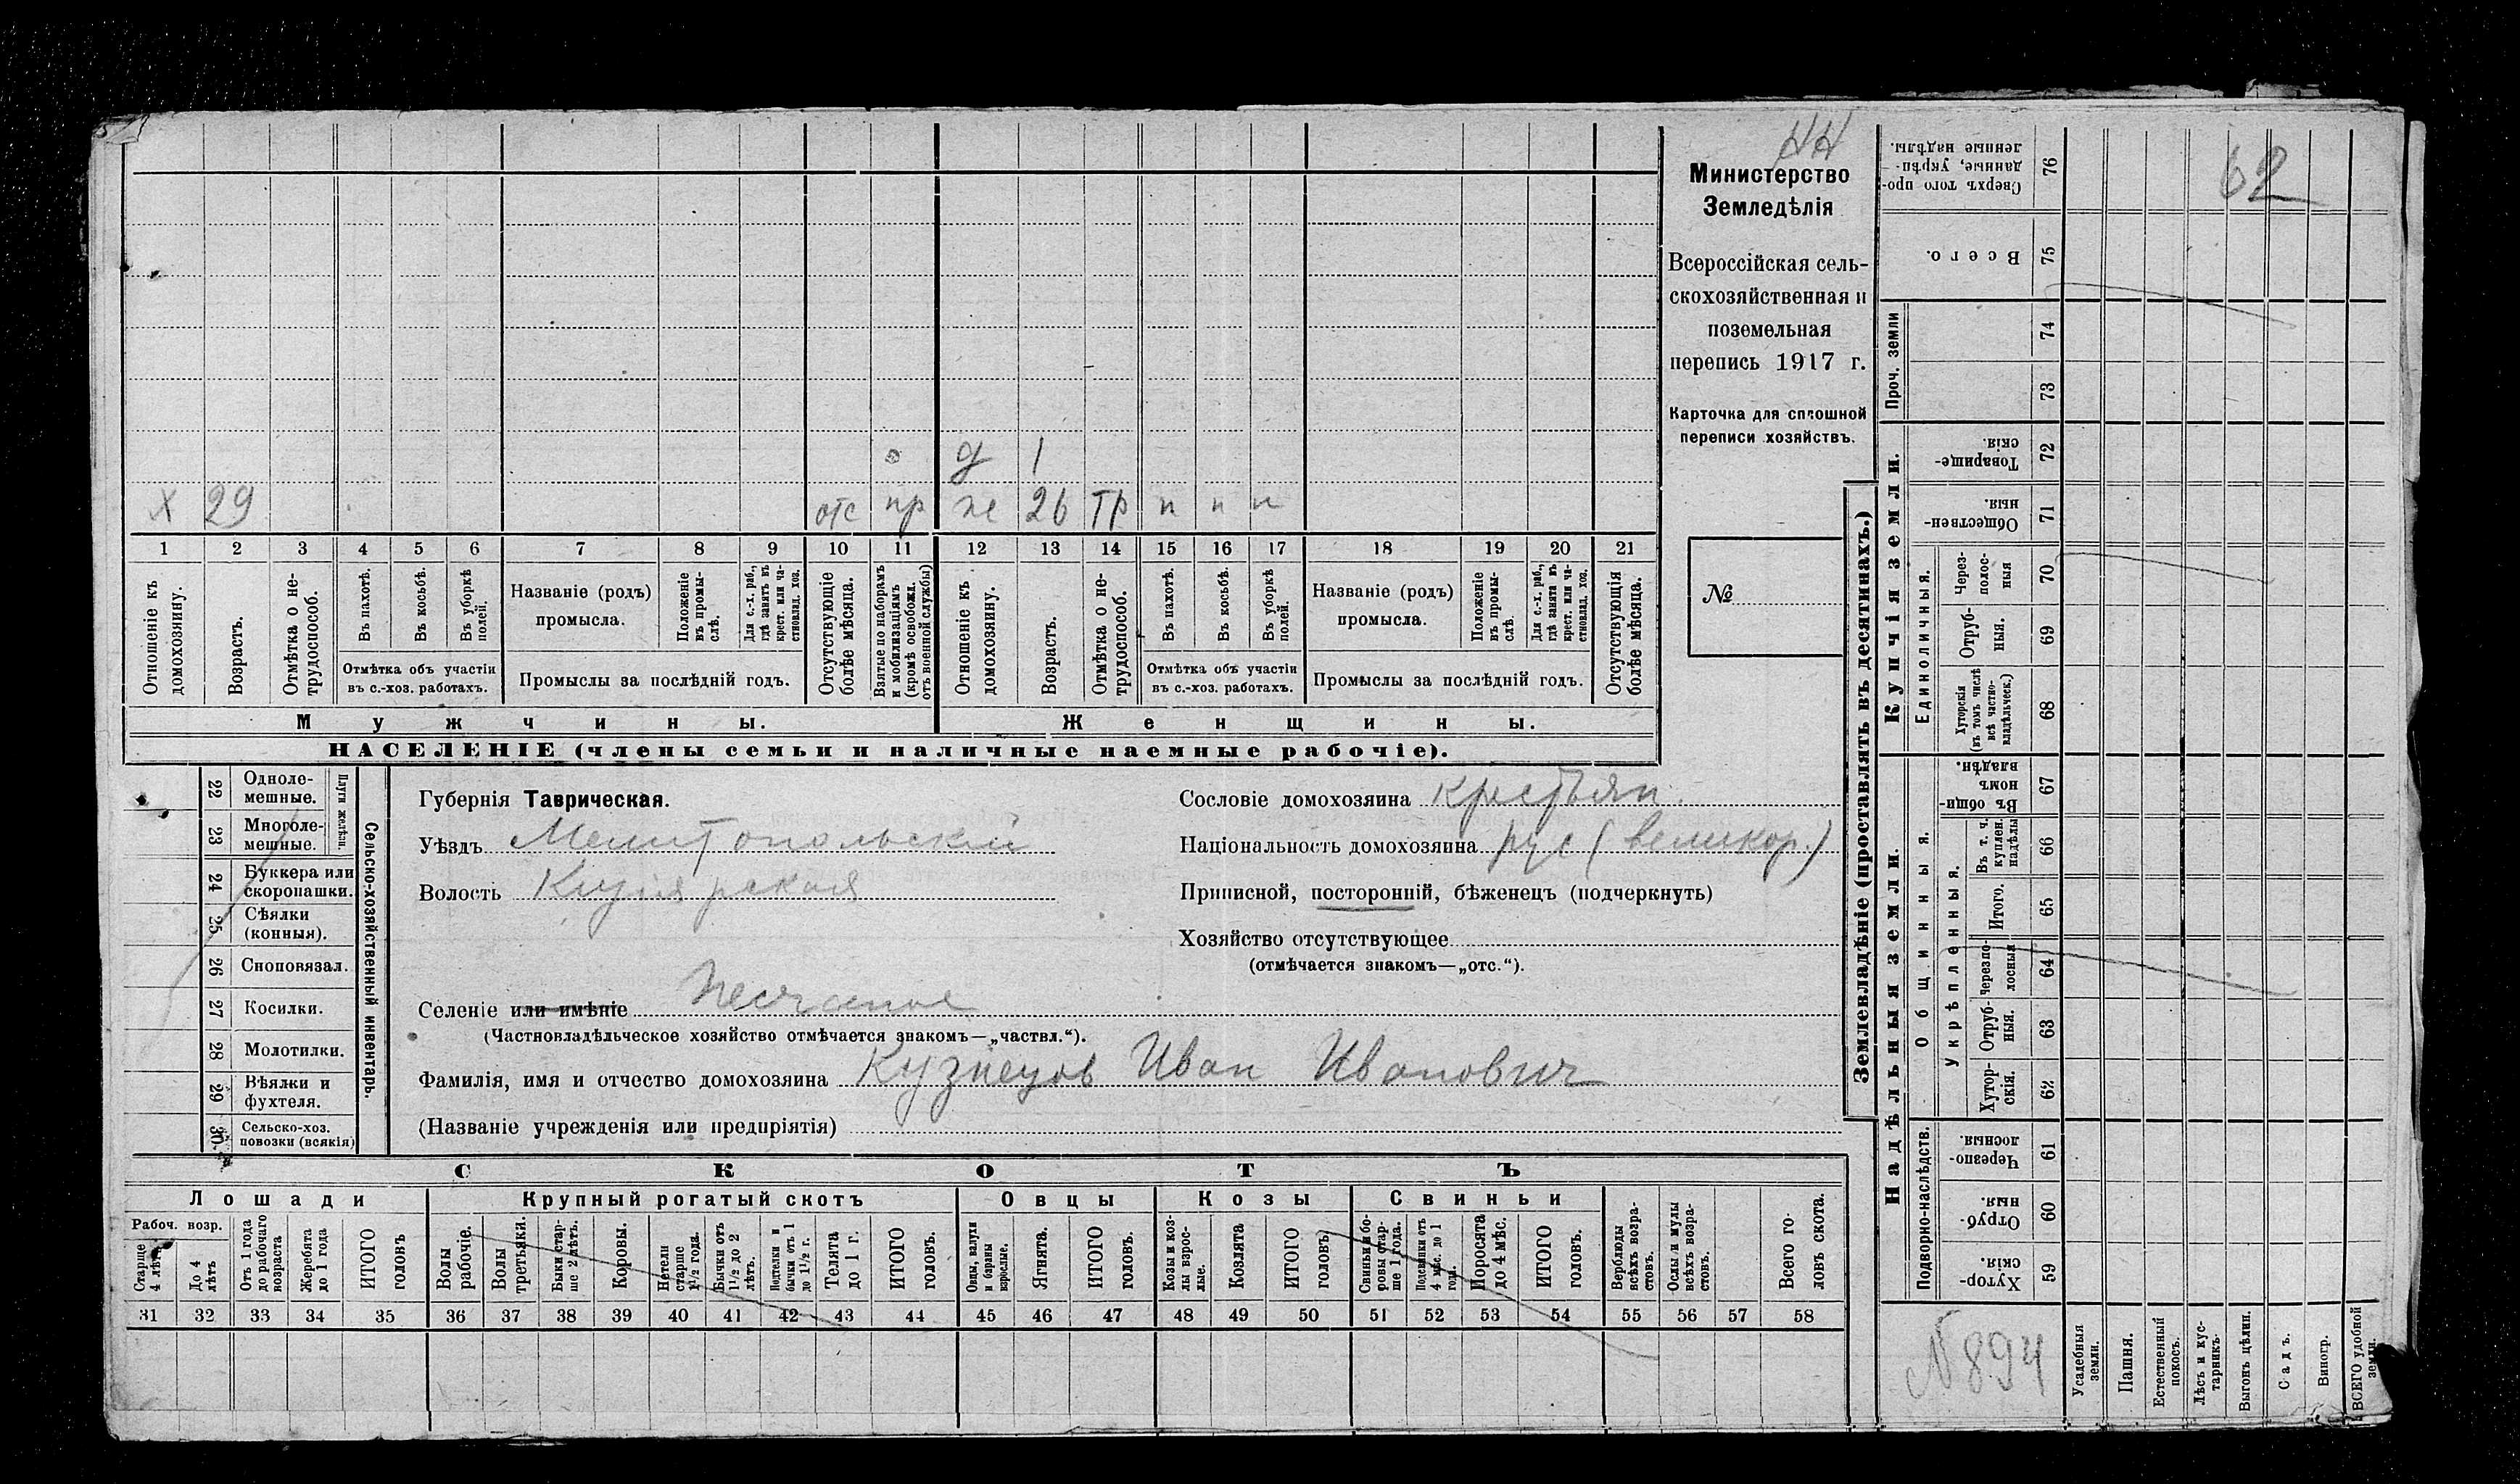 НН
Министерство
Земледѣлія
Всероссійская сель-
скохозяйственная и
поземельная
перепись 1917 г.
Карточка для сплошной
переписи хозяйствъ.
№
о д 1
х 29 отс пр же 26 тр п п п
1 2 3 4 5 6 7 8 9 10 11 12 13 14 15 16 17 18 19 20 21
Отношеніе къ домохозяину.
Возрастъ.
Отмѣтка о не-трудоспособ.
Въ пахотѣ.
Въ косьбѣ.
Въ уборкѣ полей.
Отмѣтка объ участіи
въ с.-хоз. работахъ.
Названіе (родъ)
промысла.
Положеніе въ промы-слѣ.
Для с.-х. раб., гдѣ занятъ въ крест. или ча-стновлад. хоз.
Промыслы за послѣдній годъ.
Отсутствующіе болѣе мѣсяца.
Взятые по наборамъ и мобилизаціямъ (кромѣ освобожд. отъ военной службы)
Отношеніе къ домохозяину.
Возрастъ.
Отмѣтка о не-трудоспособ.
Въ пахотѣ.
Въ косьбѣ.
Въ уборкѣ полей.
Отмѣтка объ участіи
въ с.-хоз. работахъ.
Названіе (родъ)
промысла.
Положеніе въ промы-слѣ.
Для с.-х. раб., гдѣ занята въ крест. или ча-стновлад. хоз.
Промыслы за послѣдній годъ.
Отсутствующія болѣе мѣсяца.
Мужчины.
Женщины.
НАСЕЛЕНІЕ (члены семьи и наличные наемные рабочіе).
22 Одноле-
мешные.
23 Многоле-
мешные.
Плуги желѣзн.
24 Буккера или
скоропашки.
25 Сѣялки
(конныя).
26 Сноповязал.
27 Косилки.
28 Молотилки.
29 Вѣялки и
фухтеля.
30 Сельско-хоз.
повозки (всякія)
Сельско-хозяйственный инвентарь.
Губернія Таврическая.
Уѣздъ Мелитопольскій
Волость Кизіярская
Селеніе или имѣніе Песчаное
(Частновладѣльческое хозяйство отмѣчается знакомъ—„частвл.“).
Фамилія, имя и отчество домохозяина Кузнецов Иван Иванович
(Названіе учрежденія или предпріятія)
Сословіе домохозяина крестьян.
Національность домохозяина рус (великор.)
Приписной, посторонній, бѣженецъ (подчеркнуть)
Хозяйство отсутствующее
(отмѣчается знакомъ—„отс.“).
СКОТЪ
Лошади
Крупный рогатый скотъ
Овцы
Козы
Свиньи
Рабоч. возр.
Старше 4 лѣтъ
До 4 лѣтъ
Отъ 1 года до рабочаго возраста
Жеребята до 1 года
ИТОГО головъ
Волы рабочіе.
Волы третьяки.
Быки стар-ше 2 лѣтъ.
Коровы.
Нетели старше 1½ года.
Бычки отъ 1½ до 2 лѣтъ.
Подтелки и бычки отъ 1 до 1½ г.
Телята до 1 г.
ИТОГО головъ.
Овцы, валухи и бараны взрослые.
Ягнята.
ИТОГО головъ.
Козы и коз-лы взрос-лые.
Козлята
ИТОГО головъ.
Свиньи и бо-ровы стар-ше 1 года.
Подсвинки отъ 4 мѣс. до 1 года.
Поросята до 4 мѣс.
ИТОГО головъ.
Верблюды всѣхъ возра-стовъ.
Ослы и мулы всѣхъ возра-стовъ.
Всего го-ловъ скота.
31 32 33 34 35 36 37 38 39 40 41 42 43 44 45 46 47 48 49 50 51 52 53 54 55 56 57 58
Землевладѣніе (проставлять въ десятинахъ.)
62
76 Сверхъ того про-данные, укрѣп-ленные надѣлы.
75 Всего.
Проч. земли
74
73
Купчія земли.
72 Товарище-скія.
71 Обществен-ныя.
Единоличныя.
70 Через-полос-ныя
69 Отруб-ныя.
68 Хуторскія (въ томъ числѣ всѣ частно-владѣльческ.)
Надѣльныя земли.
Общинныя.
67 Въ общин-номъ владѣн.
Укрѣпленныя.
66 Въ т. ч. куплен. надѣлы
65 Итого.
64 Черезпо-лосныя
63 Отруб-ныя.
62 Хутор-скія.
Подворно-наслѣдств.
61 Черезпо-лосныя.
60 Отруб-ныя.
59 Хутор-скія.
N 894
Усадебныя земли.
Пашня.
Естественный покосъ.
Лѣсъ и кус-тарникъ.
Выгонъ цѣлин.
Садъ.
Виногр.
ВСЕГО удобной земли.